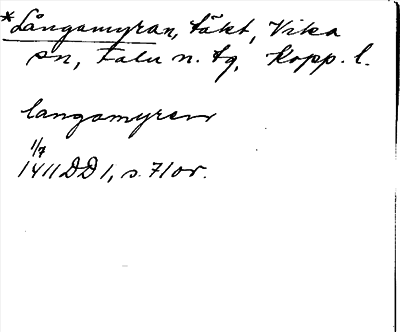 *Långamyran, täkt, Vika
sn, Falu n. tg, Kopp. l.
langamyrer
1/7
1411 DD 1, s. 71 or.